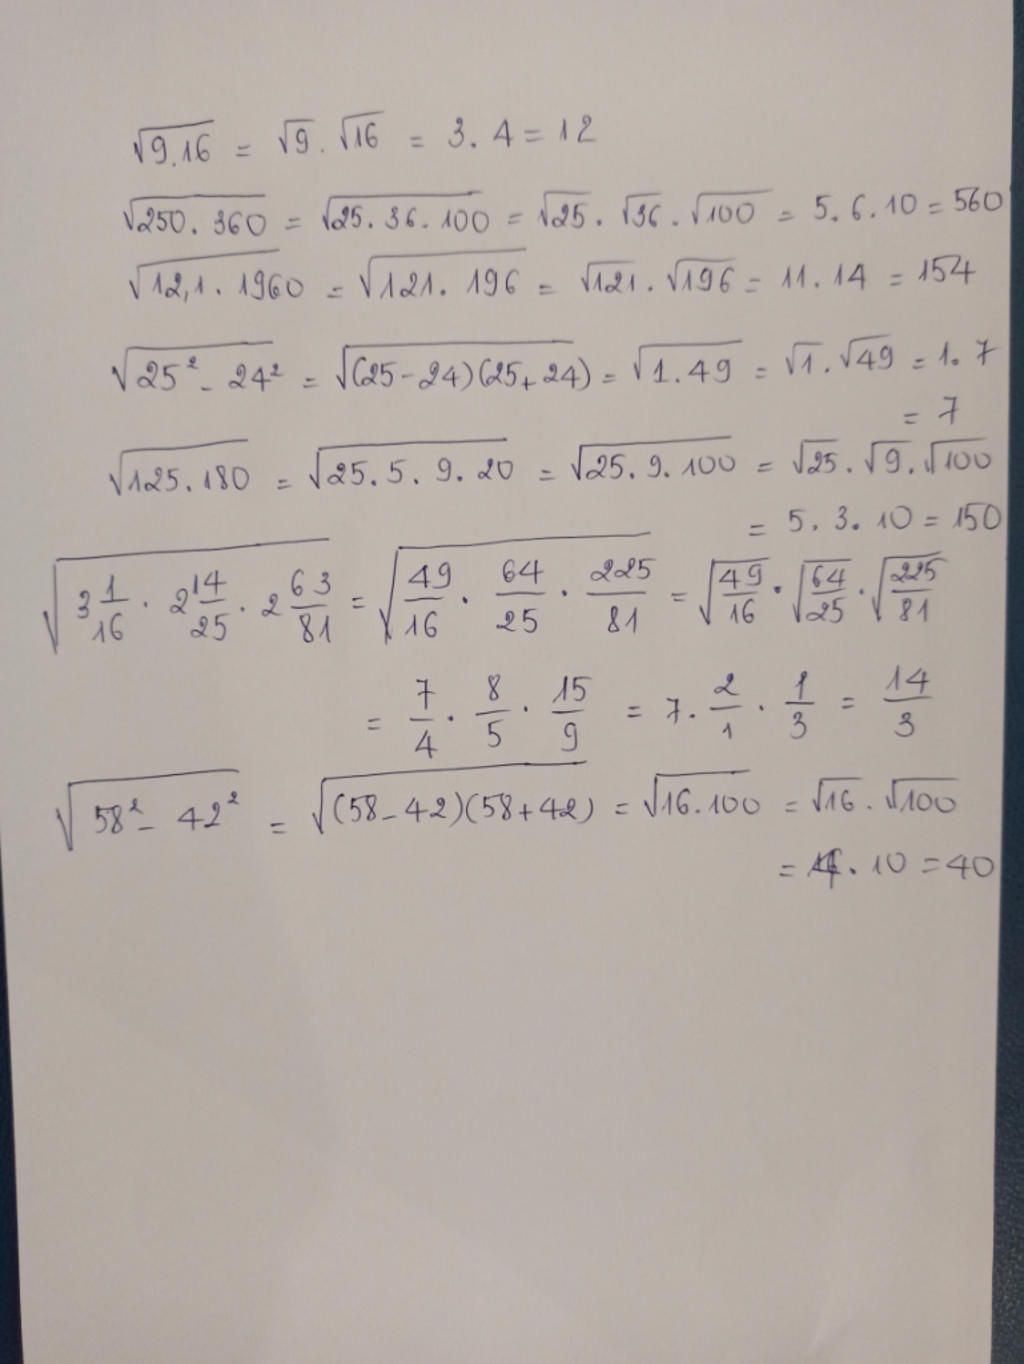 √9.16 = √9 . √16 = 3. 4 = 12
√250. 360 = √25. 36. 100 = √25 . √36 . √100 = 5. 6. 10 = 560
√12,1 . 1960 = √121. 196 = √121 . √196 = 11. 14 = 154
√25² - 24² = √(25-24)(25+24) = √1.49 = √1 . √49 = 1. 7
= 7
√125.180 = √25. 5. 9. 20 = √25. 9. 100 = √25 . √9 . √100
= 5. 3. 10 = 150
√3 1/16 . 2 14/25 . 2 63/81 = √49/16 . 64/25 . 225/81 = √49/16 . √64/25 . √225/81
= 7/4 . 8/5 . 15/9 = 7. 2/1 . 1/3 = 14/3
√58² - 42² = √(58-42)(58+42) = √16.100 = √16 . √100
= 4. 10 = 40